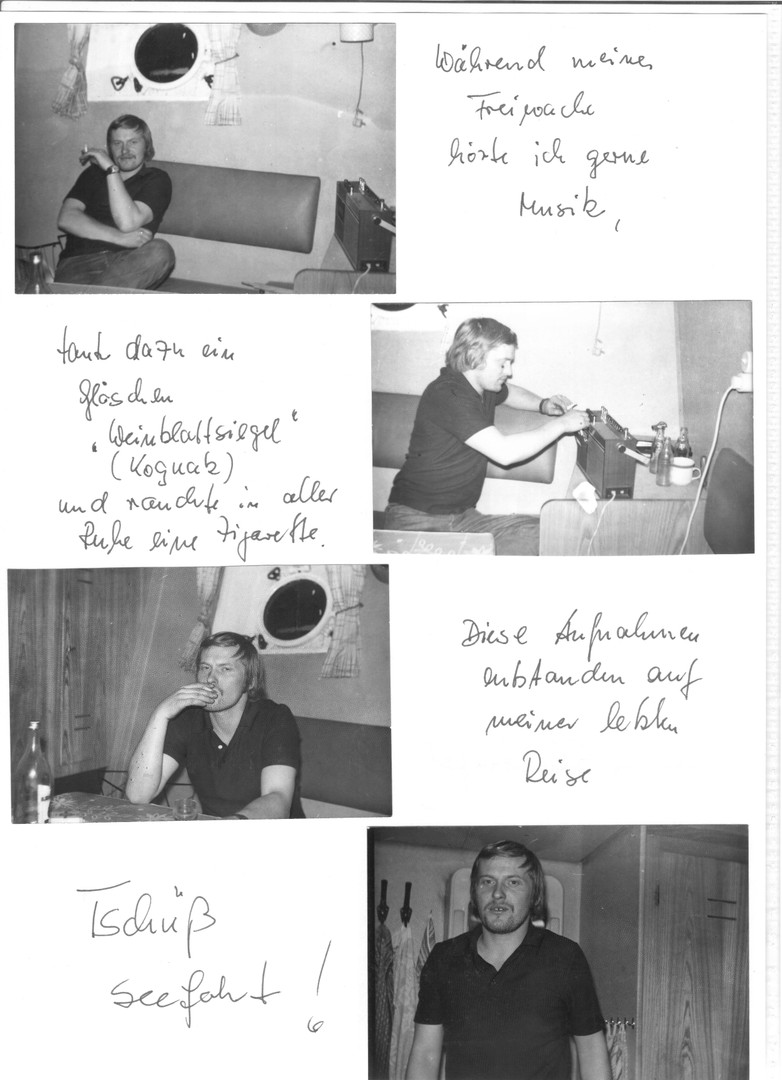 Während meiner
Freiwache
hörte ich gerne
Musik,
trank dazu ein
Gläschen
„Weinblattsiegel“
(Kognak)
und rauchte in aller
Ruhe eine Zigarette.
Diese Aufnahmen
entstanden auf
meiner letzten
Reise
Tschüß
Seefahrt!